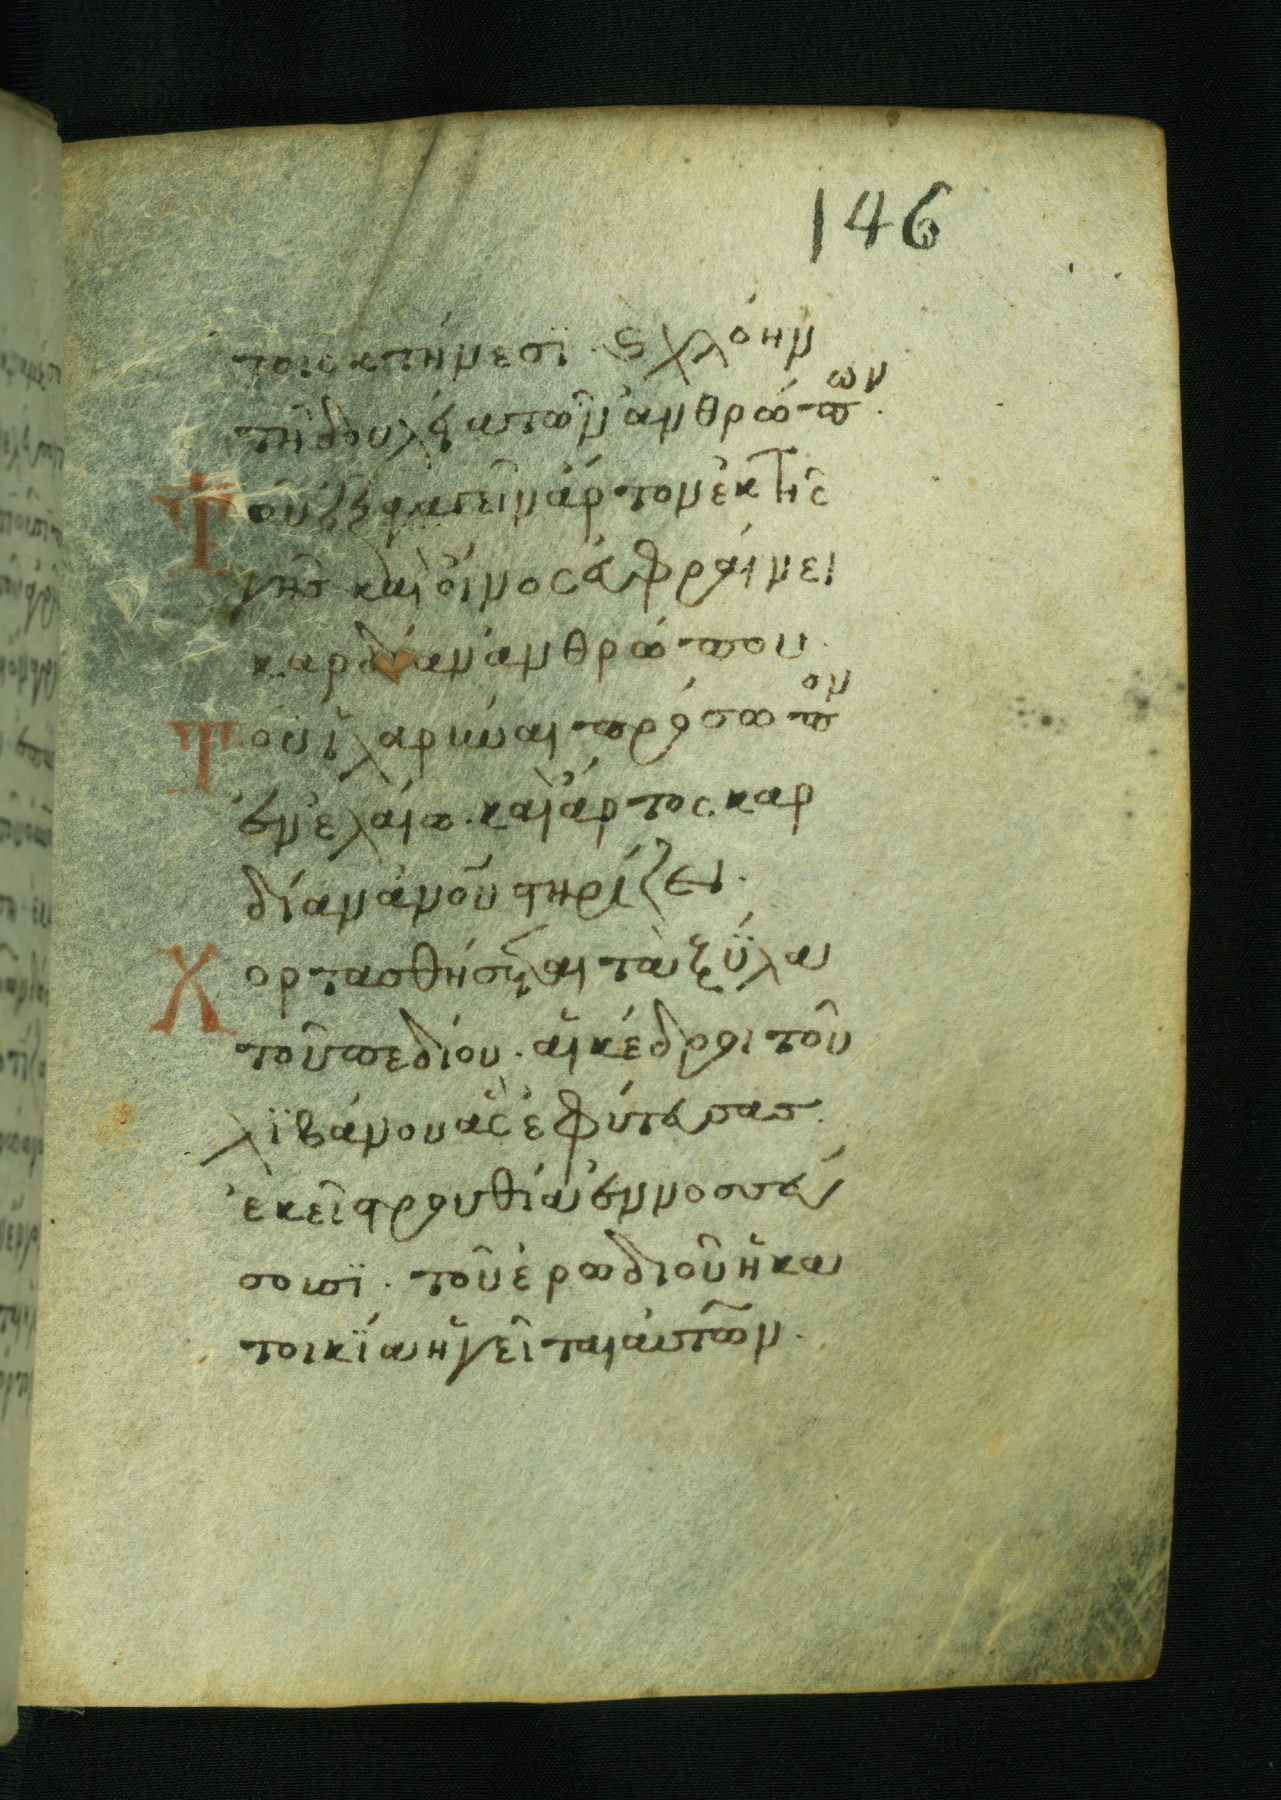 146
τοῖς κτήνεσϊ · ϛ χλόην
τῆ δουλεία τῶν ἀνθρώπων ·
Τοῦ ἐξαγαγεῖν ἄρτον ἐκ τῆς
γῆς καὶ οἶνος ἐυφραίνει
καρδίαν ἀνθρώπου ·
Τοῦ ἱλαρύναι πρόσωπον
ἐν ἐλαίω · καὶ ἄρτος καρ
δίαν ἀνοῦ στηρίζει ·
Χορτασθήσεται τὰ ξύλα
τοῦ πεδίου · αἱ κέδροι τοῦ
λϊβάνου ἃς ἐφύτευσας ·
ἐκεῖ στρουθία ἐννοσσεύ
σουσϊ · τοῦ ἐρωδιοῦ ἡ κα
τοικϊα ἡγεῖται αὐτῶν ·